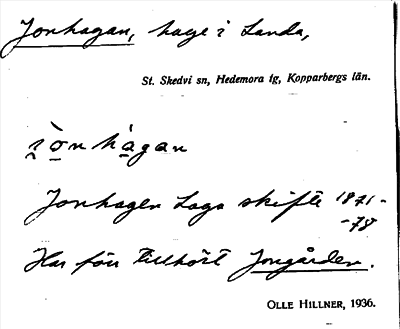 Jonhagan, hage i Landa,
St. Skedvi sn, Hedemora tg, Kopparbergs län.
jònhàgan
Jonhagen Laga skifte 1871-
-78
Har förr tillhört Jongården.
OLLE HILLNER, 1936.